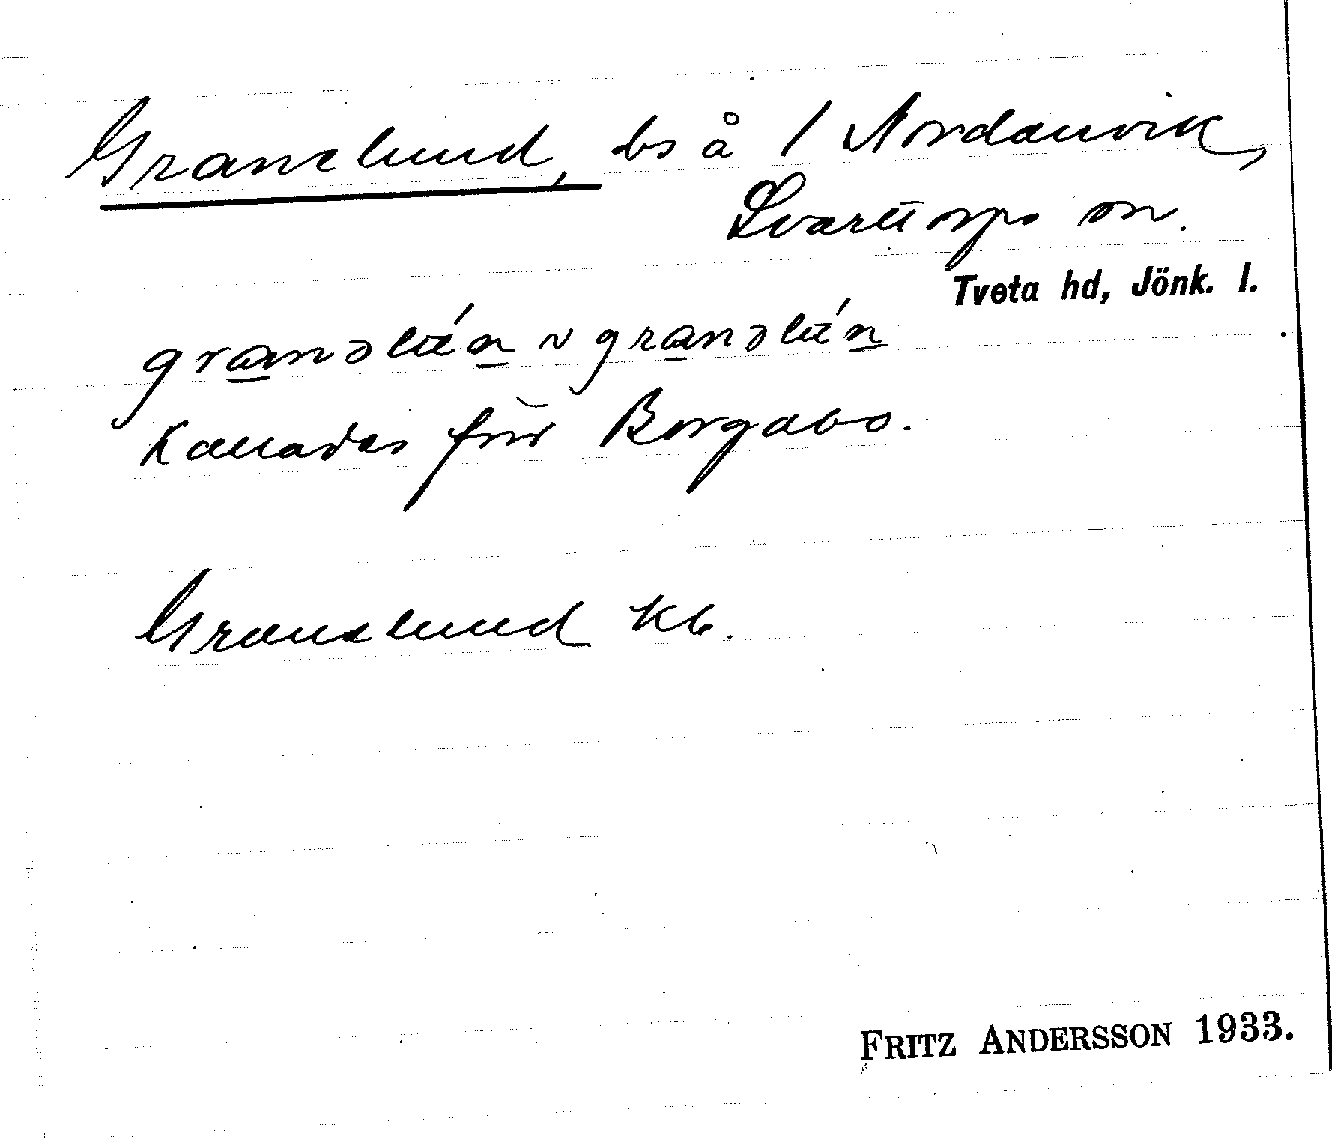 Granelund, bs å 1 Nordanvik,
Svarttorps sn.
Tveta hd, Jönk. l.
granəlún ~ granəlún
Kallades förr Borgabo.
Granelund kb.
FRITZ ANDERSSON 1933.